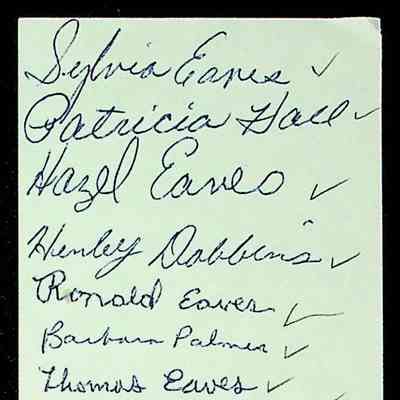 Sylvia Eaves ✓
Patricia Hall ✓
Hazel Eaves ✓
Henley Dobbins ✓
Ronald Eaves ✓
Barbara Palmer ✓
Thomas Eaves ✓